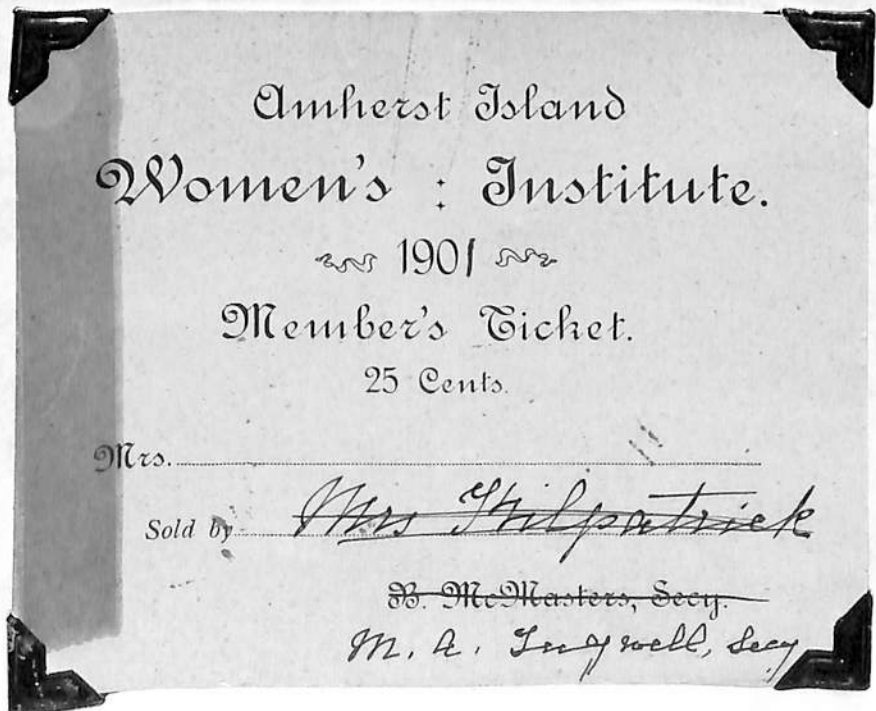 Amherst Island
Women's : Institute.
1901
Member's Ticket.
25 Cents.
Mrs.
Sold by Mrs Kilpatrick
B. McMasters, Secy.
M. A. Secy